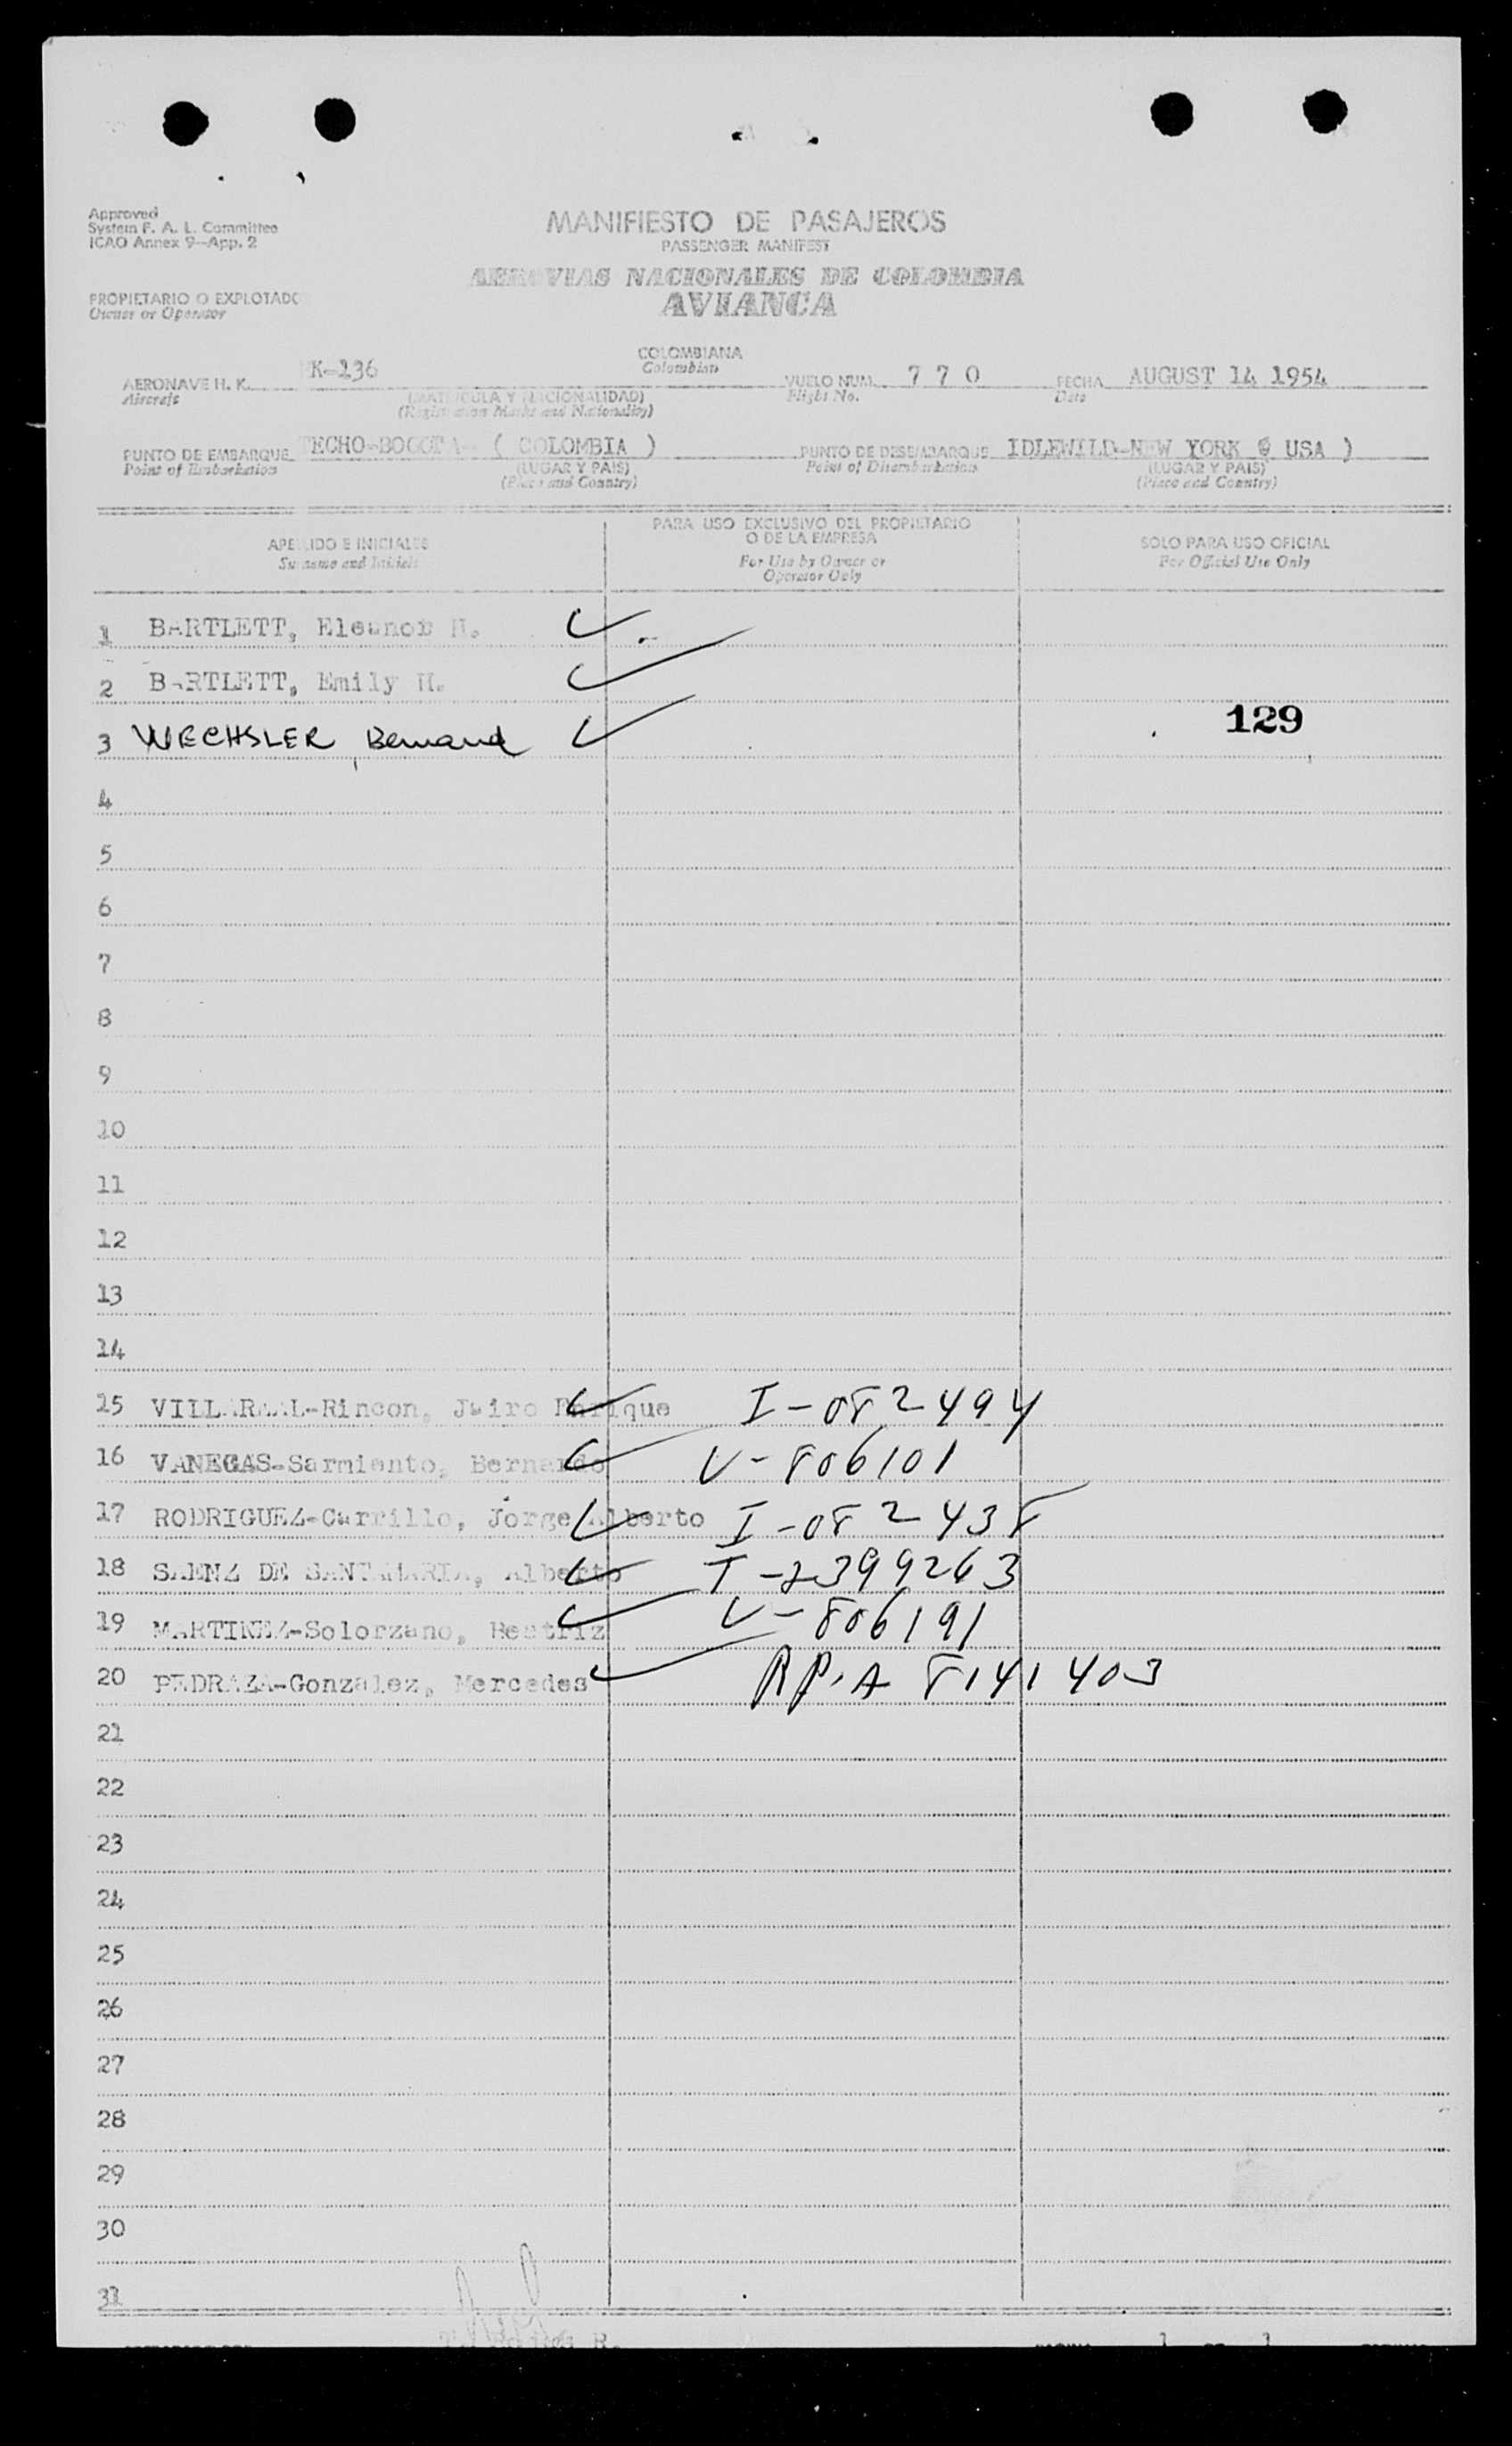 Approved
System F. A. L. Committee
ICAO Annex 9—App. 2
MANIFIESTO DE PASAJEROS
PASSENGER MANIFEST
AEROVIAS NACIONALES DE COLOMBIA
AVIANCA
PROPIETARIO O EXPLOTADO
Owner or Operator
AERONAVE H. K. K-136 COLOMBIANA VUELO NUM. 7 7 0 FECHA AUGUST 14 1954
Aircraft Colombian Flight No. Date
(MATRICULA Y NACIONALIDAD)
(Registration Marks and Nationality)
PUNTO DE EMBARQUE TECHO-BOGOTA- ( COLOMBIA ) PUNTO DE DESEMBARQUE IDLEWILD-NEW YORK ( USA )
Point of Embarkation (LUGAR Y PAIS) Point of Disembarkation (LUGAR Y PAIS)
(Place and Country) (Place and Country)
APELLIDO E INICIALES
Surname and Initials
PARA USO EXCLUSIVO DEL PROPIETARIO
O DE LA EMPRESA
For Use by Owner or
Operator Only
SOLO PARA USO OFICIAL
For Official Use Only
1 BARTLETT, Eleanor H.
2 BARTLETT, Emily H.
3 WECHSLER, Bernard 129
4
5
6
7
8
9
10
11
12
13
14
15 VILLARAAL-Rincon, Jairo Enrique I-082494
16 VANEGAS-Sarmiento, Bernardo V-806101
17 RODRIGUEZ-Carrillo, Jorge Alberto I-082438
18 SAENZ DE SANTAMARIA, Alberto T-2399263
19 MARTINEZ-Solorzano, Beatriz V-806191
20 PEDRAZA-Gonzalez, Mercedes RP.A 8141403
21
22
23
24
25
26
27
28
29
30
31